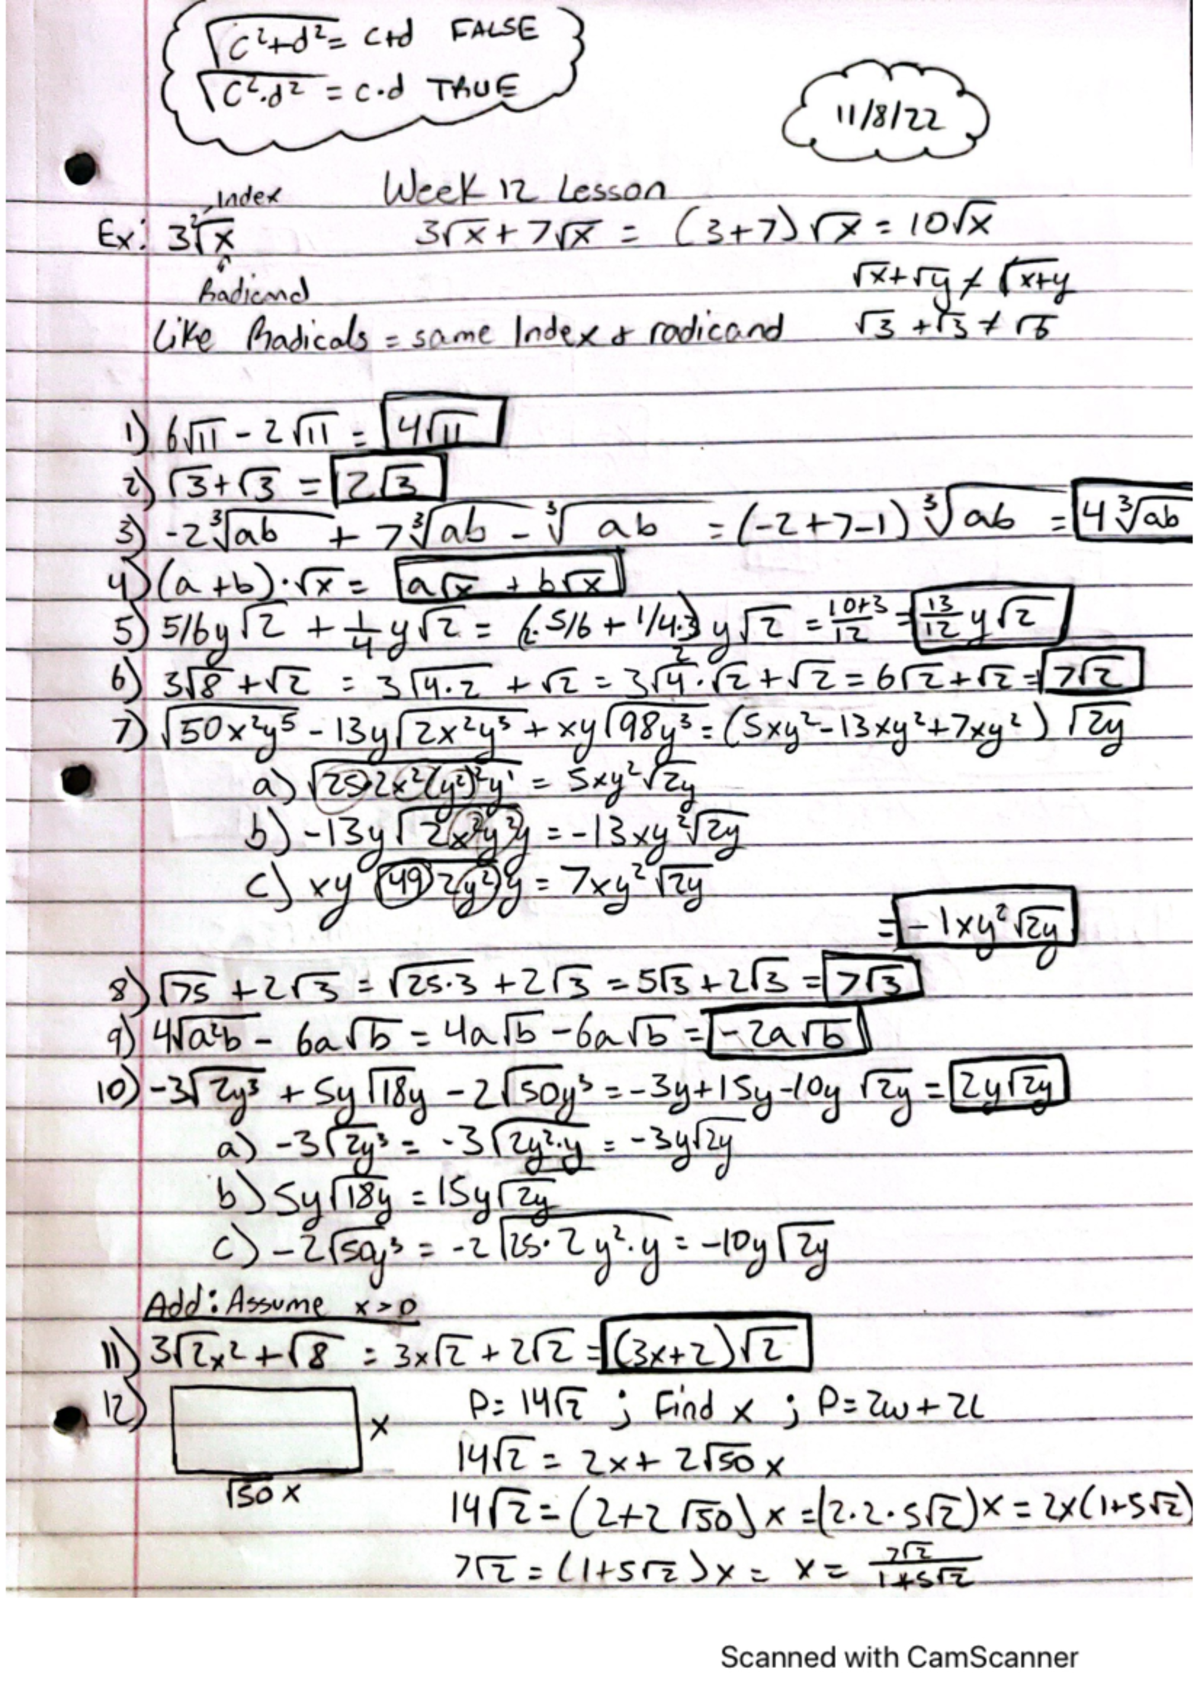 √(c²+d²) = c+d FALSE
√(c²·d²) = c·d TRUE
11/8/22
Week 12 Lesson
Index
Ex: 3²√x
3√x + 7√x = (3+7)√x = 10√x
Radicand
√x+√y ≠ √(x+y)
Like Radicals = same Index & radicand
√3 + √3 ≠ √6
1) 6√11 - 2√11 = 4√11
2) √3+√3 = 2√3
3) -2∛ab + 7∛ab - ∛ab = (-2+7-1)∛ab = 4∛ab
4) (a+b)·√x = a√x + b√x
5) 5/6y√2 + 1/4 y√2 = (2·5/6 + 1/4·3) y√2 = 10+3/12 = 13/12 y√2
6) 3√8 + √2 = 3√(4·2) + √2 = 3√4·√2 + √2 = 6√2 + √2 = 7√2
7) √(50x²y⁵) - 13y√(2x²y³) + xy√(98y³) = (5xy² - 13xy² + 7xy²) √2y
a) √(25·2x²(y²)²y¹) = 5xy²√2y
b) -13y√(2x²y²y) = -13xy²√2y
c) xy√(49·2y²)y = 7xy²√2y
= -1xy²√2y
8) √75 + 2√3 = √(25·3) + 2√3 = 5√3 + 2√3 = 7√3
9) 4√(a²b) - 6a√b = 4a√b - 6a√b = -2a√b
10) -3√(2y³) + 5y√18y - 2√(50y³) = -3y+15y-10y √2y = 2y√2y
a) -3√(2y³) = -3√(2y²·y) = -3y√2y
b) 5y√18y = 15y√2y
c) -2√(50y³) = -2√(25·2y²·y) = -10y√2y
Add: Assume x>0
11) 3√(2x²) + √8 = 3x√2 + 2√2 = (3x+2)√2
12) x P = 14√2 ; Find x ; P = 2w + 2L
14√2 = 2x + 2√50 x
√50 x
14√2 = (2+2√50)x = (2·2·5√2)x = 2x(1+5√2)
7√2 = (1+5√2)x = x = 7√2/1+5√2
Scanned with CamScanner